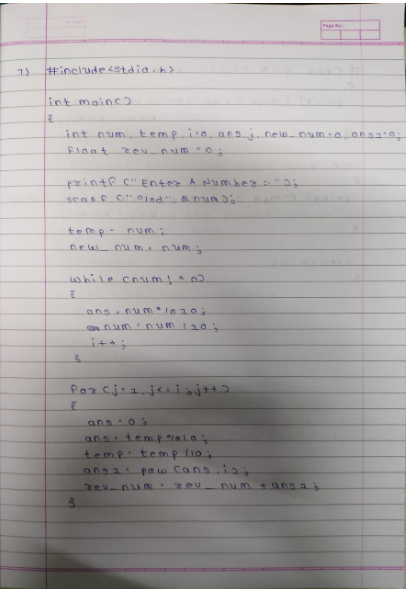 Page No.:
7) #include<stdio.h>
int main()
{
int num, temp, i=0, ans, j, new_num=0, ans1=0;
float rev_num=0;
printf ("Enter A Number :- ");
scanf ("%d", &num);
temp = num;
new_num = num;
while (num != 0)
{
ans = num % 10;
num = num / 10;
i++;
}
for (j=1, j<=i; j++)
{
ans = 0;
ans = temp % 10;
temp = temp / 10;
ans1 = pow (ans, i);
rev_num = rev_num + ans1;
}